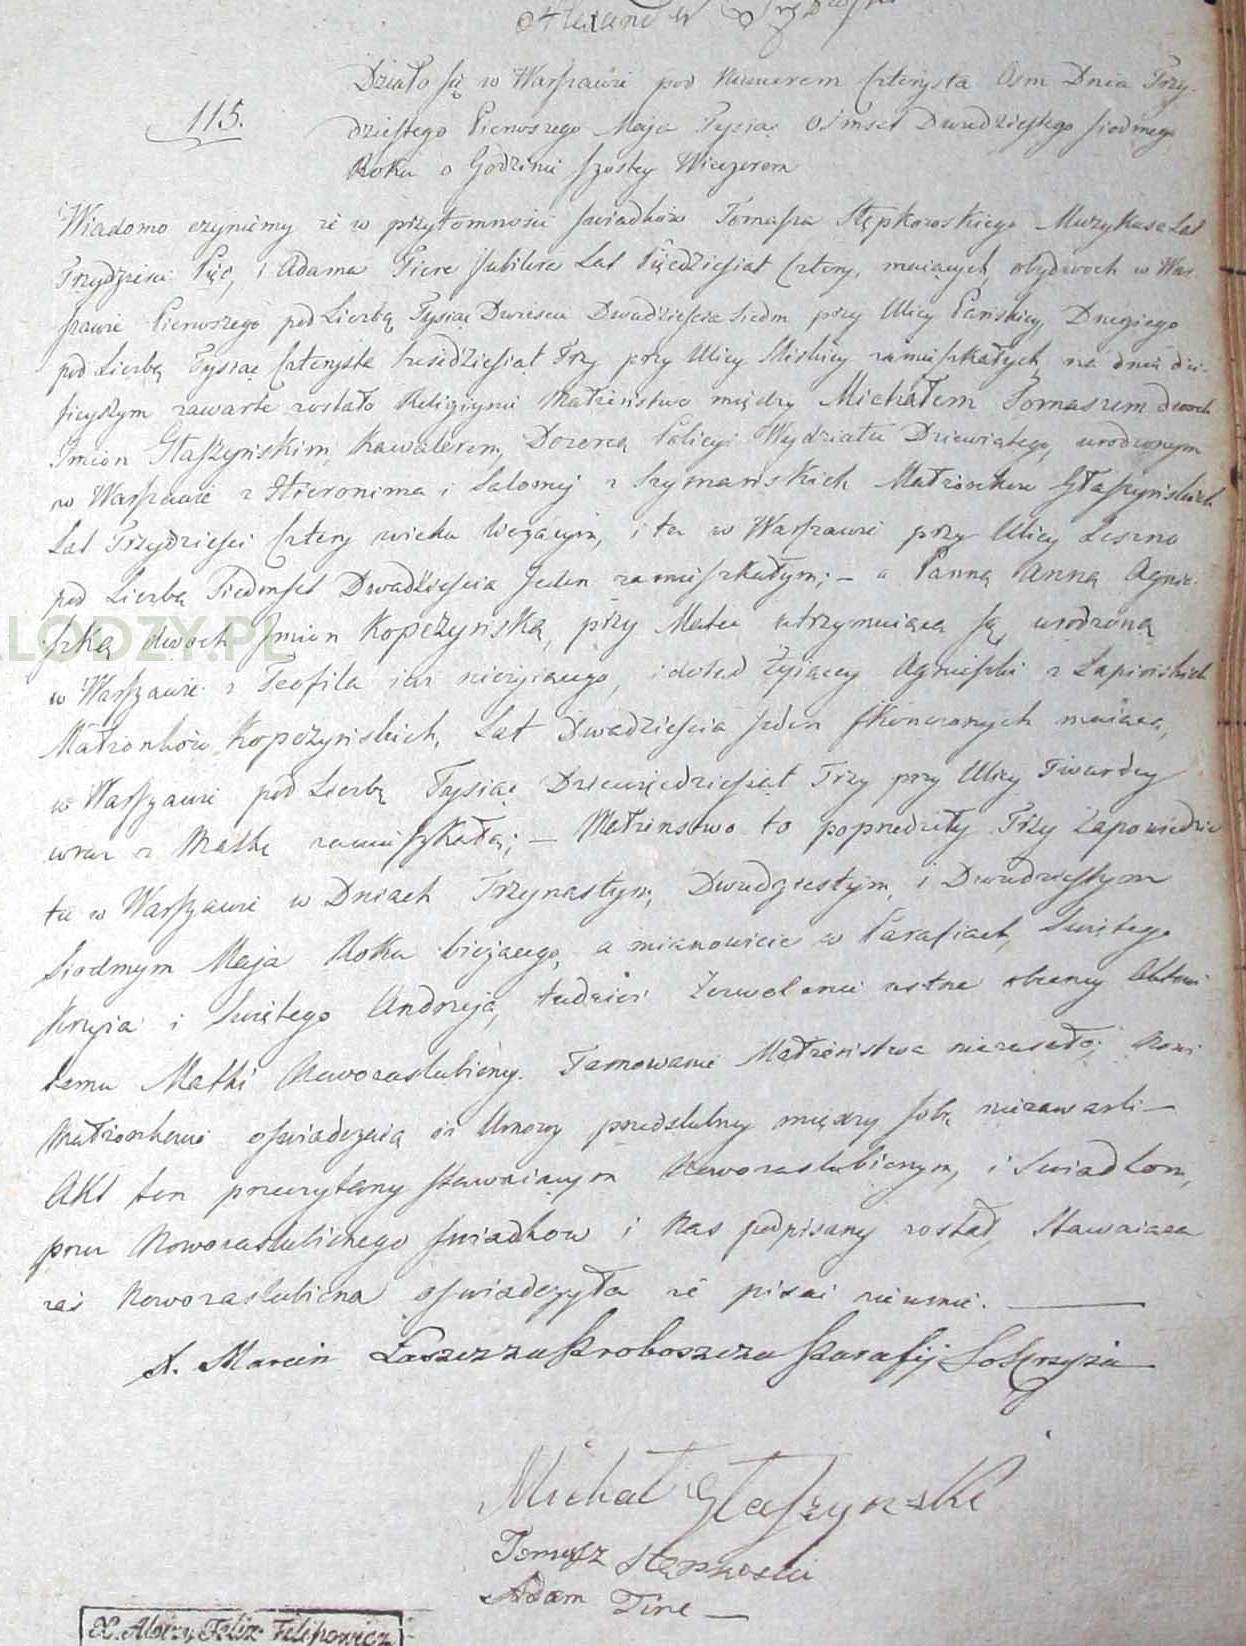 Działo się w Warszawie pod Numerem Czterysta Ośm Dnia Trzy-
115.
dziestego Pierwszego Maja Tysiąc Ośmset Dwudziestego siodmego
Roku o Godzinie szostey Wieczorem
Wiadomo czyniemy że w przytomności świadków Tomasza Stępkowskiego Muzykusa Lat
Trzydzieści Pięć, i Adama Jubilera Lat Pięćdziesiąt Cztery, maiących, obydwoch w War-
szawie Pierwszego pod Liczbą Tysiąc Dwieście Dwadzieścia Siedm przy Ulicy Pańskiey, Drugiego
pod Liczbą Tysiąc Czterysta Sześćdziesiąt Trzy przy Ulicy Śliskiey zamieszkałych, na dniu dzi-
sieyszym zawarte zostało Religijne Małżeństwo między Michałem Tomaszem dwoch
Imion Głaszyńskim, Kawalerem, Dozorcą Policyi Wydziału Dziewiątego, urodzonym
w Warszawie z Hieronima i Salomeji z Szymańskich Małżonków Głaszyńskich
Lat Trzydzieści Cztery wieku liczącym, i tu w Warszawie przy Ulicy Leszno
pod Liczbą Siedmset Dwadzieścia Jeden zamieszkałym; – a Panną Anną Agnie-
szką dwoch Imion Kopczyńską, przy Matce utrzymuiącą się, urodzoną
w Warszawie z Teofila iuż nieżyiącego, i dotąd żyiącey Agnieszki z Łapińskich
Małżonków Kopczyńskich, Lat Dwadzieścia Jeden skończonych maiącą,
w Warszawie pod Liczbą Tysiąc Dziewięćdziesiąt Trzy przy Ulicy Twardey
wraz z Matką zamieszkałą; – Małżeństwo to poprzedziły Trzy Zapowiedzie
tu w Warszawie w Dniach Trzynastym, Dwudziestym, i Dwudziestym
Siodmym Maja Roku bieżącego, a mianowicie w Parafiach, Świętego
Krzyża i Świętego Andrzeja, tudzież Zezwolenie ustne obecney Aktowi
temu Matki Nowozaślubioney. Tamowanie Małżeństwa niezaszło; Nowi
Małżonkowie oświadczaią iż Umowy przedślubney między sobą niezawarli –
Akt ten przeczytany stawaiącym Nowozaślubionym, i Świadkom,
przez Nowozaślubionego świadków i Nas podpisany został, Stawaiąca
zaś Nowozaślubiona oświadczyła że pisać nieumie. –
X. Marcin Parafij S Krzyża
Michał Głaszynski
Tomasz Stępkoski
Adam –
X. Felix Felipowicz
LODZY.PL